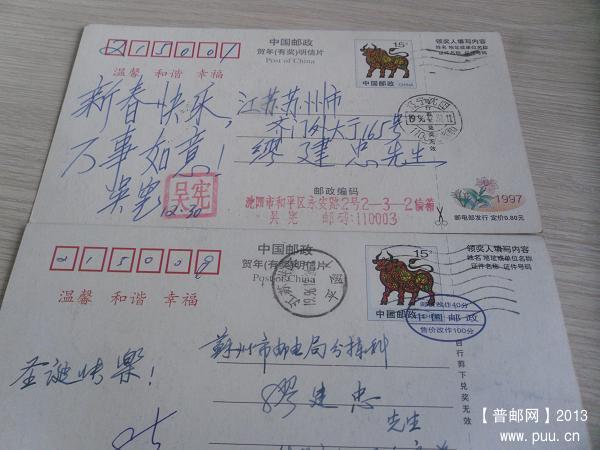 215001
中国邮政
贺年(有奖)明信片
Post of China
15分
CHINA
中国邮政
领奖人填写内容
姓名 地址或单位名称
证件名称 证件号码
温馨 和谐 幸福
新春快乐,
万事如意!
吴宪
12.30
吴宪
江苏苏州市
齐门外大厅165号
缪建忠先生
邮政编码
沈阳市和平区永安路2号2-3-2信箱
吴宪 邮码:110003
1997
邮电部发行 定价0.80元
215008
中国邮政
贺年(有奖)明信片
Post of China
15分
中国邮政
领奖人填写内容
姓名 地址或单位名称
证件名称 证件号码
邮资改作40分
中国邮政
售价改作100分
自行剪下兑奖无效
温馨 和谐 幸福
圣诞快樂!
蘇州市邮电局分拣科
缪建忠
先生
【普邮网】2013
www.puu.cn